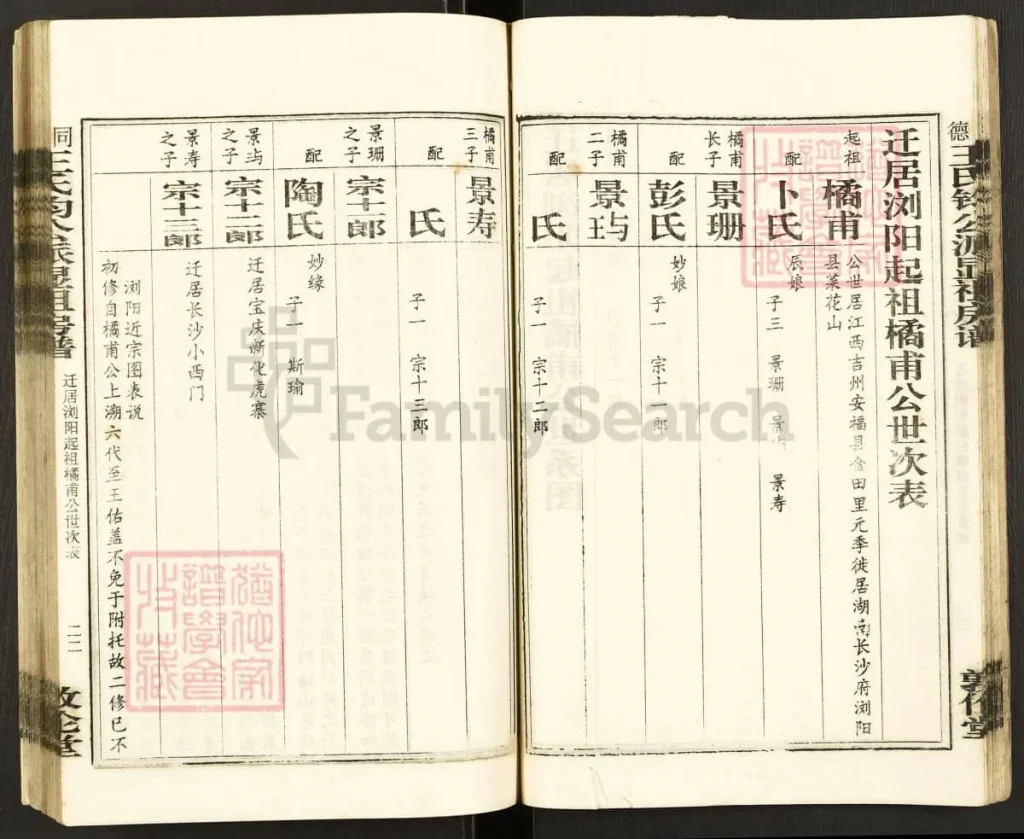 迁居浏阳起祖橘甫公世次表
起祖 橘甫 公世居江西吉州安福县金田里元季徙居湖南长沙府浏阳
县菜花山
配 卜氏 辰娘 子三 景珊 景 景寿
橘甫长子 景珊
配 彭氏 妙娘 子一 宗十一郎
橘甫二子 景与王
配 氏 子一 宗十二郎
橘甫三子 景寿
配 氏 子一 宗十三郎
景珊之子 宗十一郎
配 陶氏 妙缘 子一 斯瑜
景玙之子 宗十二郎 迁居宝庆新化虎寨
景寿之子 宗十三郎 迁居长沙小西门
浏阳近宗图表说
初修自橘甫公上溯六代至王佑盖不免于附托故二修已不
迁居浏阳起祖橘甫公世次表
二二
FamilySearch